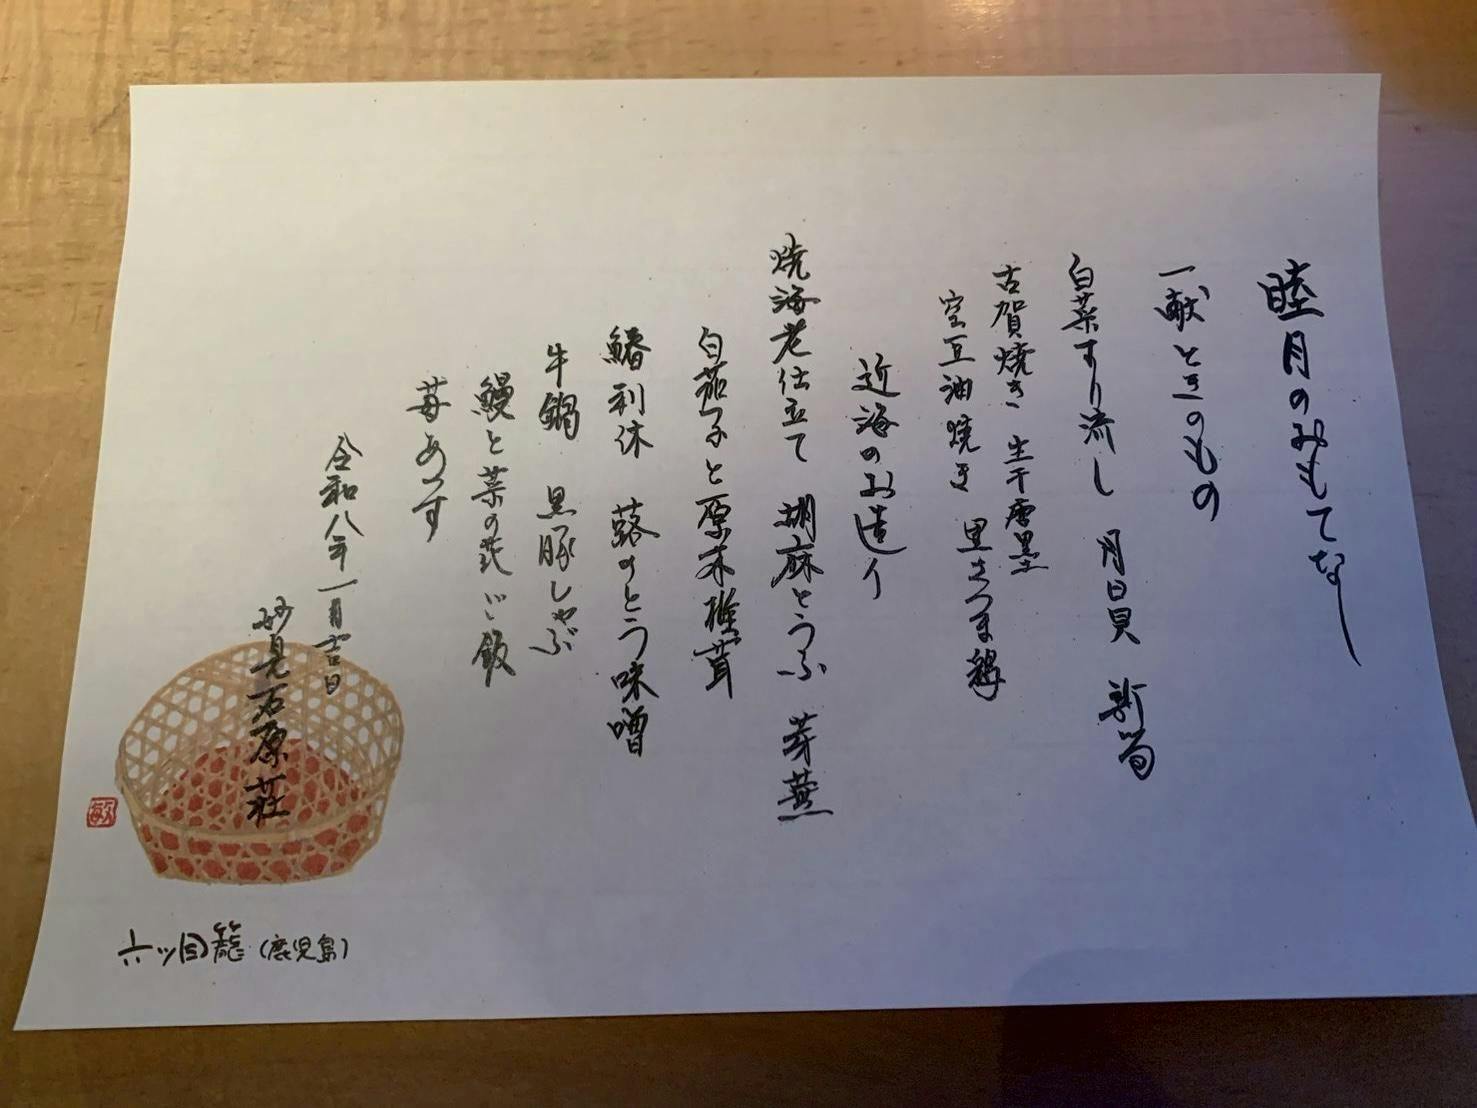 睦月のおもてなし
一献ときのもの
白菜すり流し 月日貝 新筍
古賀焼き 生干唐墨
空豆油焼き 黒さつま鶏
近海のお造り
焼海老仕立て 胡麻とうふ 芽蕪
白茄子と原木椎茸
鰆利休 蕗のとう味噌
牛鍋 黒豚しゃぶ
鰻と菜の花ご飯
苺あいす
令和八年一月吉日
妙見石原荘
六ツ目籠(鹿児島)